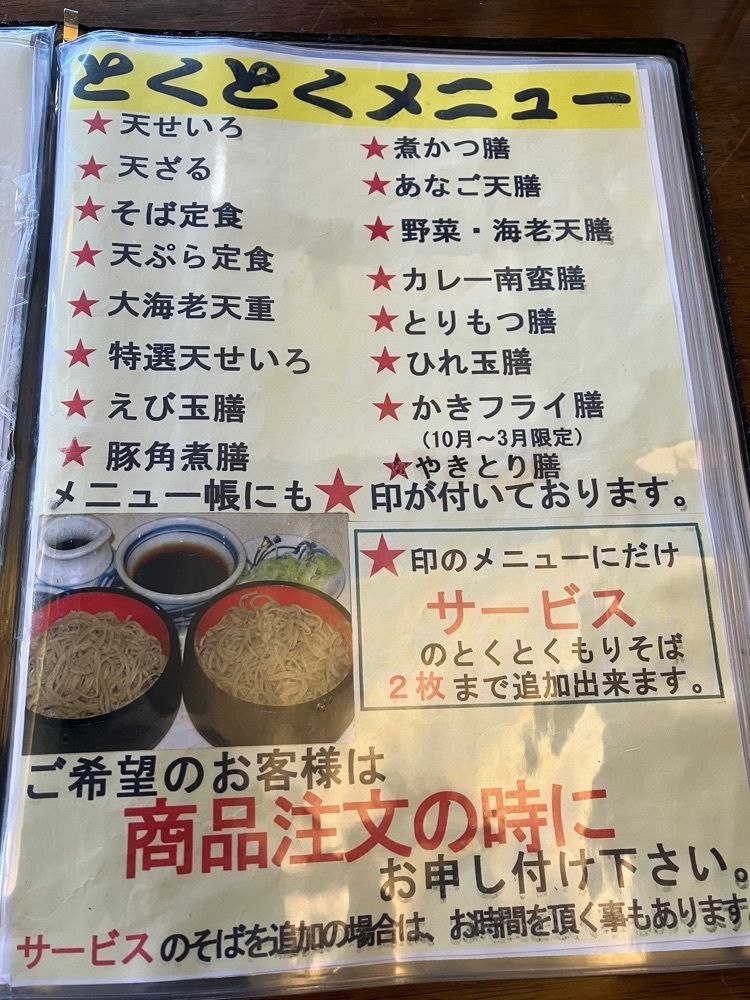 とくとくメニュー
★天せいろ
★天ざる
★そば定食
★天ぷら定食
★大海老天重
★特選天せいろ
★えび玉膳
★豚角煮膳
★煮かつ膳
★あなご天膳
★野菜・海老天膳
★カレー南蛮膳
★とりもつ膳
★ひれ玉膳
★かきフライ膳
(10月～3月限定)
★やきとり膳
メニュー帳にも★印が付いております。
★印のメニューにだけ
サービス
のとくとくもりそば
2枚まで追加出来ます。
ご希望のお客様は
商品注文の時に
お申し付け下さい。
サービスのそばを追加の場合は、お時間を頂く事もあります